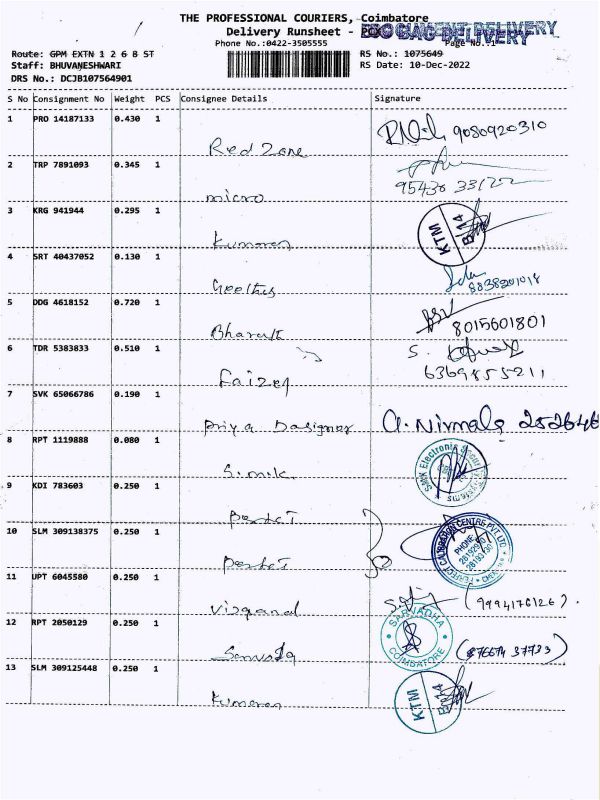 THE PROFESSIONAL COURIERS, Coimbatore
Delivery Runsheet -
Phone No.:0422-3505555 Page No.:1
Route: GPM EXTN 1 2 6 8 ST RS No.: 1075649
Staff: BHUVANESHWARI RS Date: 10-Dec-2022
DRS No.: DCJB107564901
S No Consignment No Weight PCS Consignee Details Signature
1 PRO 14187133 0.430 1 9080920310
Red Zone
2 TRP 7891093 0.345 1
micro 95436 33122
3 KRG 941944 0.295 1 KTM
Kumaran
4 SRT 40437052 0.130 1
Geethus 8838201018
5 DDG 4618152 0.720 1
Bharati 8015601801
6 TDR 5383833 0.510 1 S.
Faizel 6369855211
7 SVK 65066786 0.190 1
Priya Dasigner A. Nirmala
8 RPT 1119888 0.080 1
S.m.k SMK Electronic Security Systems
9 KDI 783603 0.250 1
10 SLM 309138375 0.250 1
PERFECT CALIBRATION CENTRE PVT LTD
PHONE
11 UPT 6045580 0.250 1
(9994176126).
12 RPT 2050129 0.250 1
SARVADHA COIMBATORE (87667 37733)
13 SLM 309125448 0.250 1 KTM
Kumaran